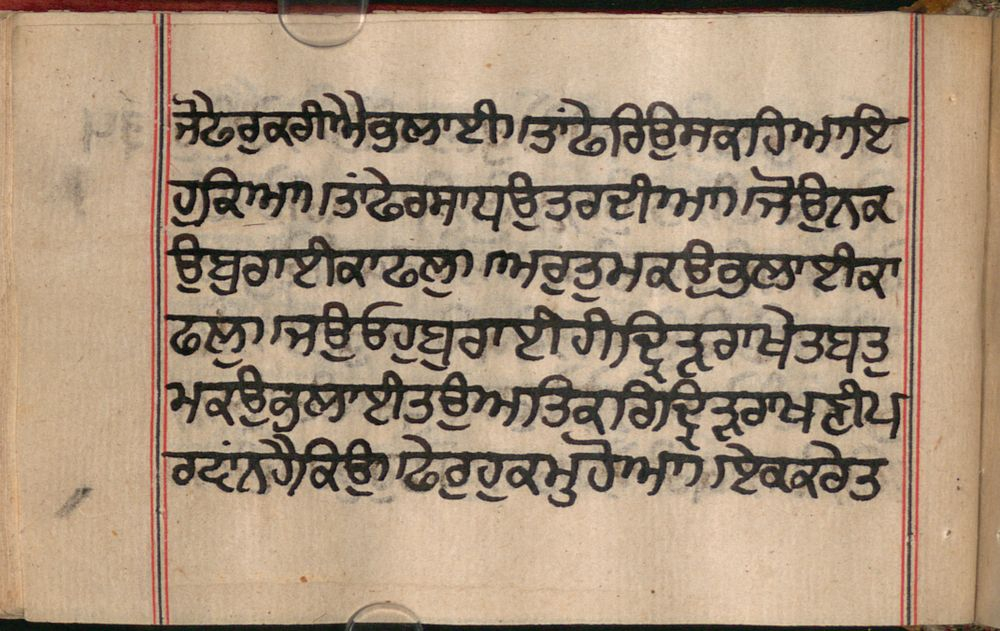 ਜੋਫੇਰੁਕਰੀਐਭੁਲਾਈ।ਤਾਂਫੇਰਿਉਸਕਹਿਆਇ
ਹੁਕਿਆ।ਤਾਂਫੇਰਸਾਧਉਤਰਦੀਆ।ਜੋਉਨਕ
ਉਬੁਰਾਈਕਾਫਲੁ।ਅਰੁਤੁਮਕਉਭੁਲਾਈਕਾ
ਫਲੁ।ਜਉਓਹੁਬੁਰਾਈਹੀਦ੍ਰਿੜੁਰਾਖੇਤਬਤੁ
ਮਕਉਭੁਲਾਈਤਉਅਤਿਕਰਿਦ੍ਰਿੜੁਰਾਖਣੀਪ
ਰਵਾਂਨਹੈਕਿਉ।ਫੇਰੁਹੁਕਮੁਹੋਆ।ਇਕਕਰੇਤ